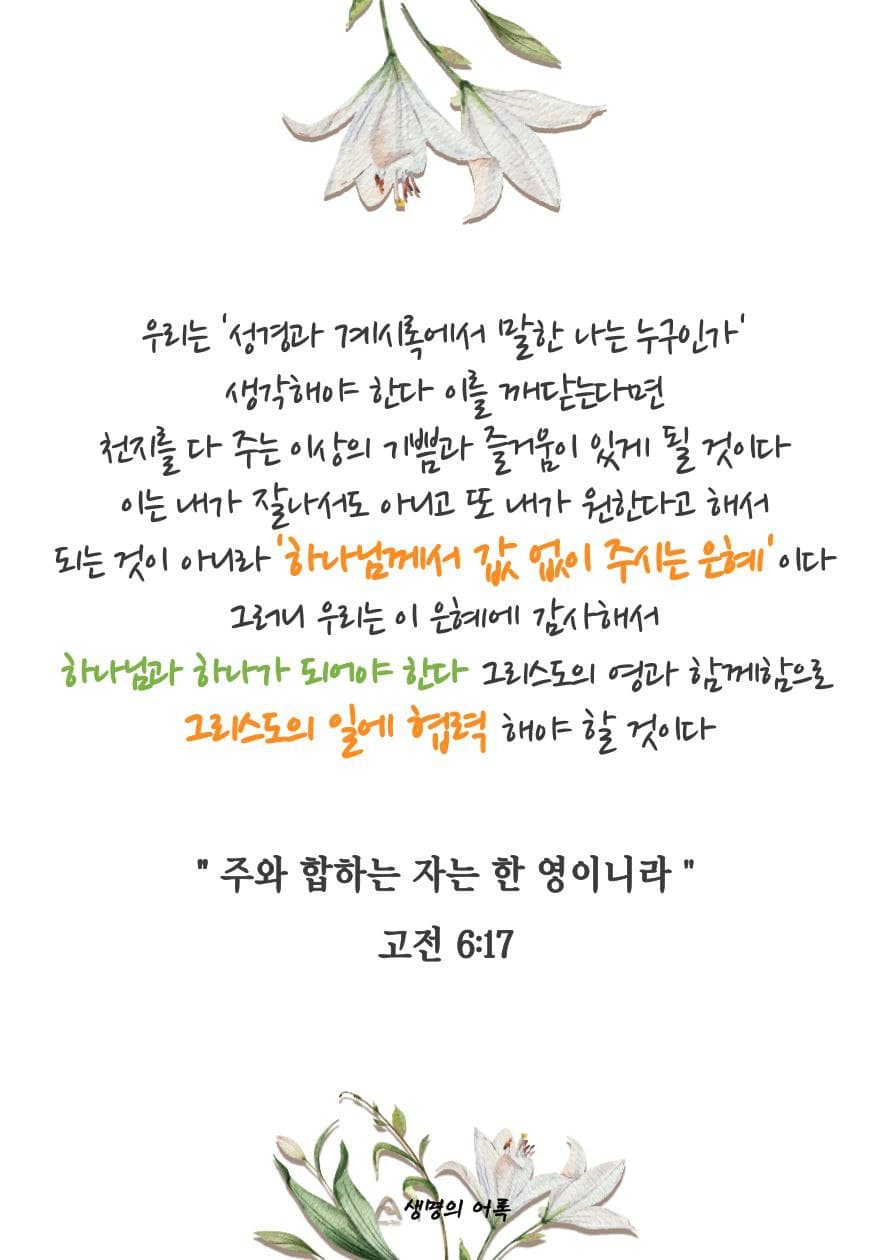 우리는 '성경과 계시록에서 말한 나는 누구인가'
생각해야 한다 이를 깨닫는다면
천지를 다 주는 이상의 기쁨과 즐거움이 있게 될 것이다
이는 내가 잘나서도 아니고 또 내가 원한다고 해서
되는 것이 아니라 '하나님께서 값 없이 주시는 은혜'이다
그러니 우리는 이 은혜에 감사해서
하나님과 하나가 되어야 한다 그리스도의 영과 함께함으로
그리스도의 일에 협력 해야 할 것이다
" 주와 합하는 자는 한 영이니라 "
고전 6:17
생명의 어록